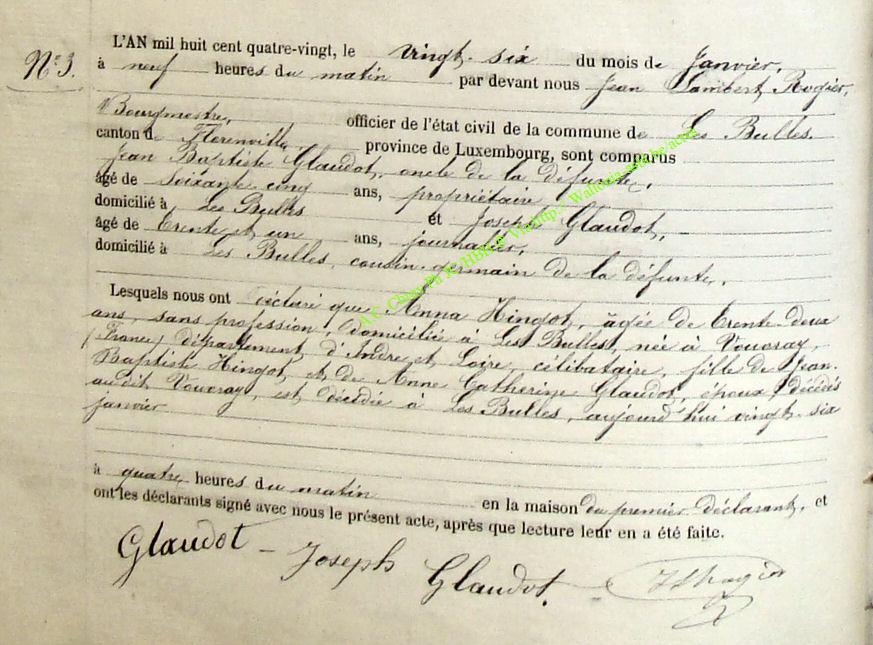 N° 3.
L'AN mil huit cent quatre-vingt, le vingt-six du mois de Janvier,
à neuf heures du matin par devant nous Jean Lambert Rogier,
Bourgmestre, officier de l'état civil de la commune de Les Bulles.
canton de Florenville province de Luxembourg, sont comparus
Jean Baptiste Glaudot, oncle de la défunte,
âgé de Soixante cinq ans, propriétaire
domicilié à Les Bulles et Joseph Glaudot,
âgé de trente et un ans, journalier,
domicilié à Les Bulles, cousin-germain de la défunte.
Lesquels nous ont déclaré que Anna Hingot, âgée de trente-deux
ans, sans profession, domiciliée à Les Bulles, née à Vouvray,
(France) département d'Indre et Loire, célibataire, fille de Jean-
Baptiste Hingot et de Anne Catherine Glaudot, époux décédés
audit Vouvray, est décédée à Les Bulles, aujourd'hui vingt-six
janvier
à quatre heures du matin en la maison du premier déclarant, et
ont les déclarants signé avec nous le présent acte, après que lecture leur en a été faite.
Glaudot - Joseph Glaudot.